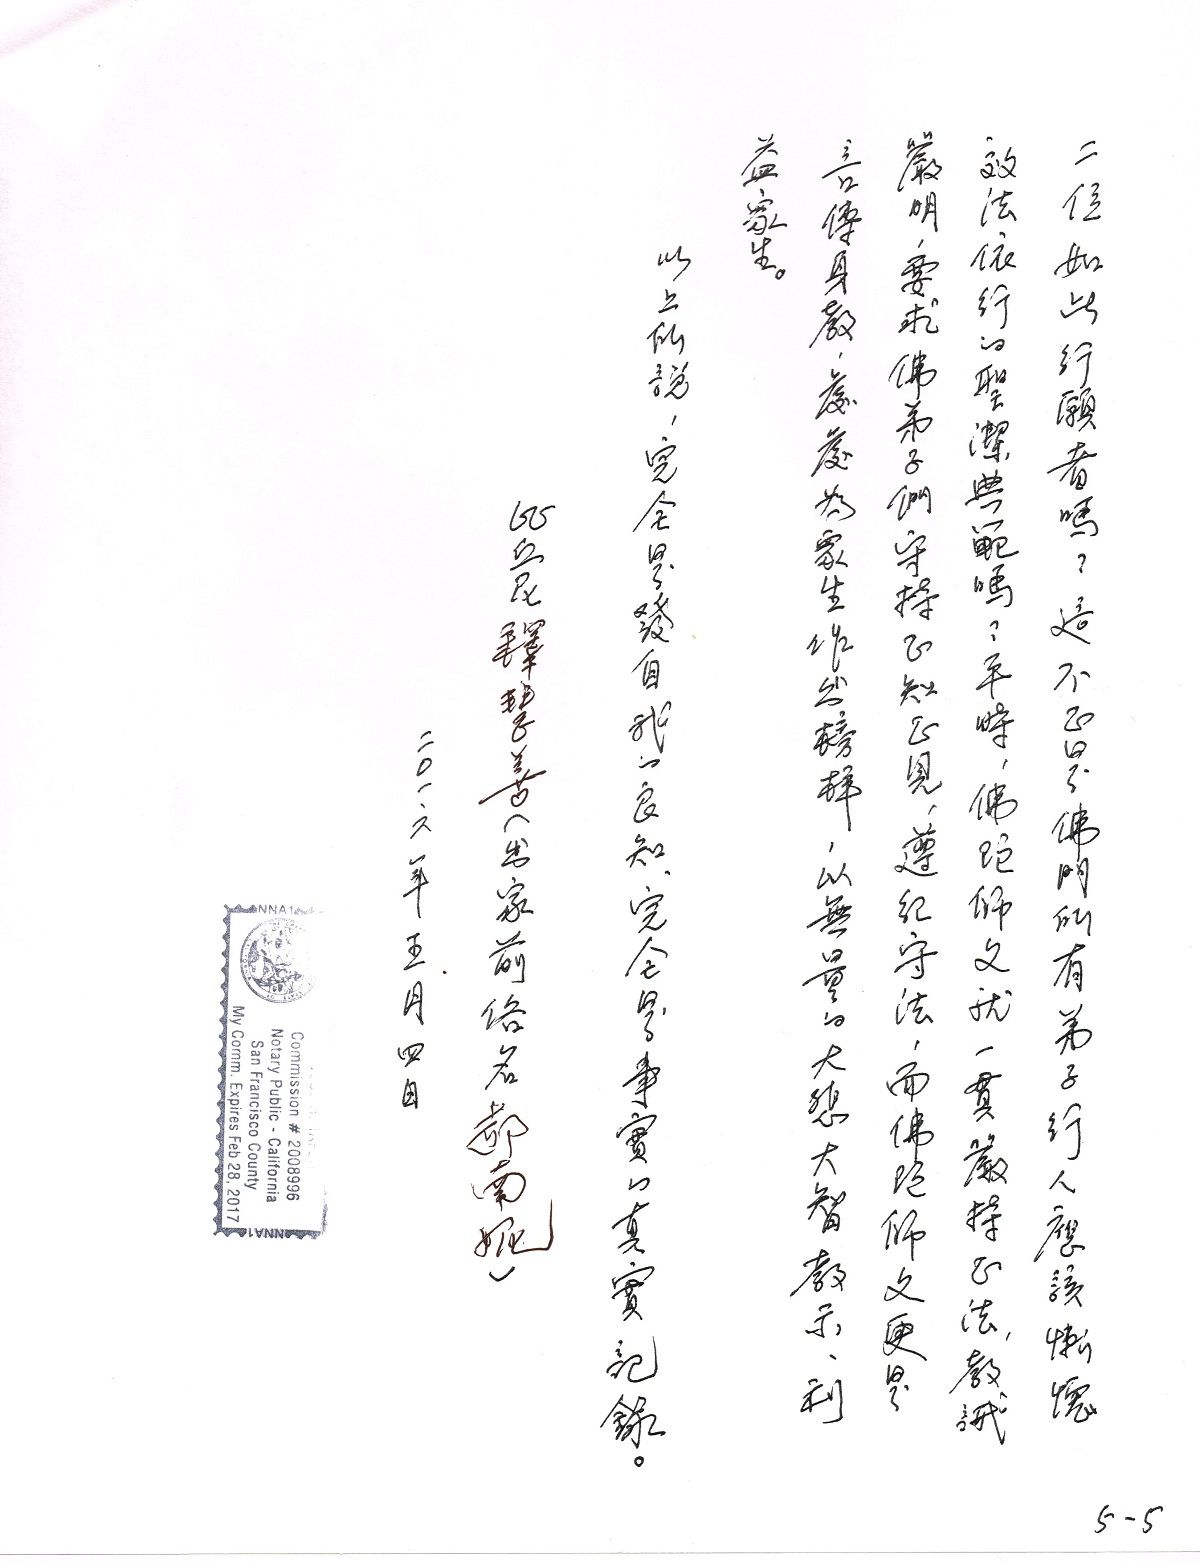 二位如此行願者嗎？這不正是佛門所有弟子行人應該慚愧
效法依行的聖潔典範嗎？平時，佛陀師父就一貫嚴持正法，教誡
嚴明，要求佛弟子們守持正知正見，遵紀守法，而佛陀師父更是
言傳身教，處處為眾生作出榜樣，以無量的大悲大智教示、利
益眾生。
以上所說，完全是發自我的良知、完全是事實的真實記錄。
比丘尼釋慧善（出家前俗名郝南娓）
二〇一六年五月四日
NNA1
Commission # 2008996
Notary Public - California
San Francisco County
My Comm. Expires Feb 28, 2017
NNA1
5-5